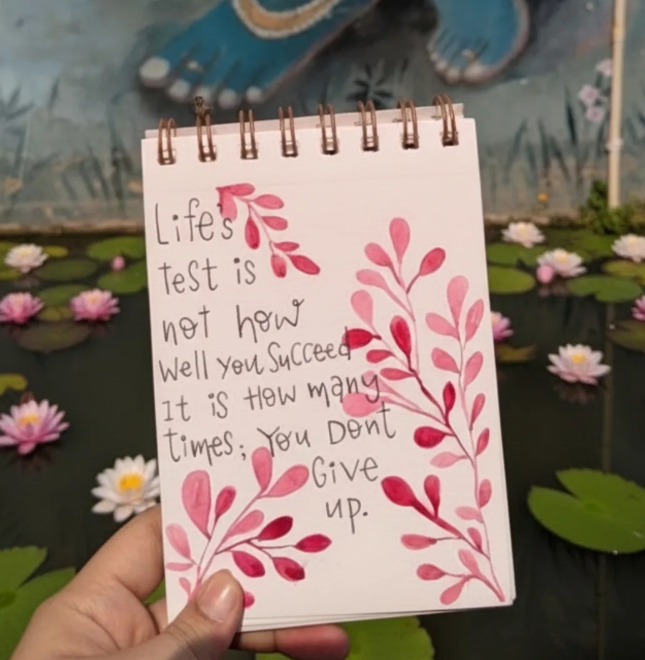 Life's
test is
not how
well you Succeed
It is How many
times; You Dont
Give
up.